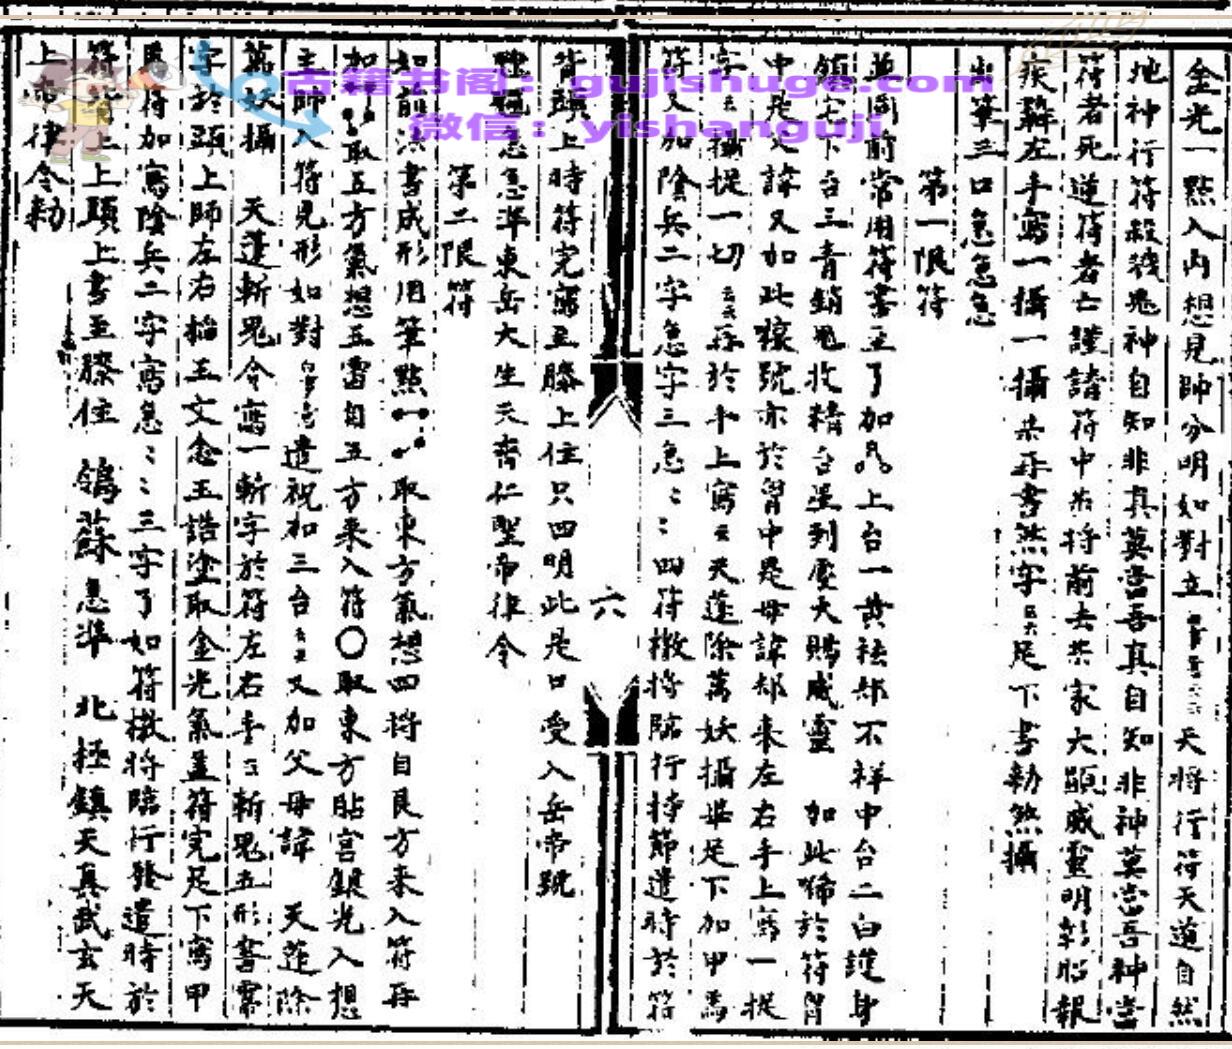 金光一點入內想見師分明如對立 天將行符天道自然
地神行符殺伐鬼神自知非真莫當吾真自知非神莫當吾神當
符者死逆符者亡謹請符中 將前去 家大顯威靈明彰昭報
疾 左手寫一攝一攝 書煞字 足下書勅煞攝
出筆三口急急急
第一限符
並同前常用符書立了加 上台一黃祛却不祥中台二白護身
鎮宅下台三青銷鬼收精台星到處大賜威靈 加此 於符胷
中是 諱又加此 號亦於胷中是母諱却來左右手上寫一捉
字 攝捉一切 於手上寫 天蓬除萬妖攝 足下加甲馬
符又加陰兵二字急字三急 四符檄將臨行持節遣時於符
背頭上時符完寫至膝上住只四明此是口受入岳帝號
急急準東岳大生天齊仁聖帝律令
六
第二限符
如前法書成形用筆點 取東方氣想四將自艮方來入符再
如 取五方氣想五雷自五方來入符〇取東方 宮銀光入想
主師入符見形如對 遣祝加三台 又加父母諱 天蓬除
萬妖攝 天蓬斬鬼令寫一斬字於符左右手 斬鬼五形書
字於頭上師左右 玉文念玉誥塗取金光氣蓋符完足下寫甲
馬符加寫陰兵二字寫急 三字了如符檄將臨行發遣時於
符背上上頭上書至膝住 蘇急準 北極鎮天真武玄天
上帝律令勅
古籍书阁：gujishuge.com
微信：yishanguji